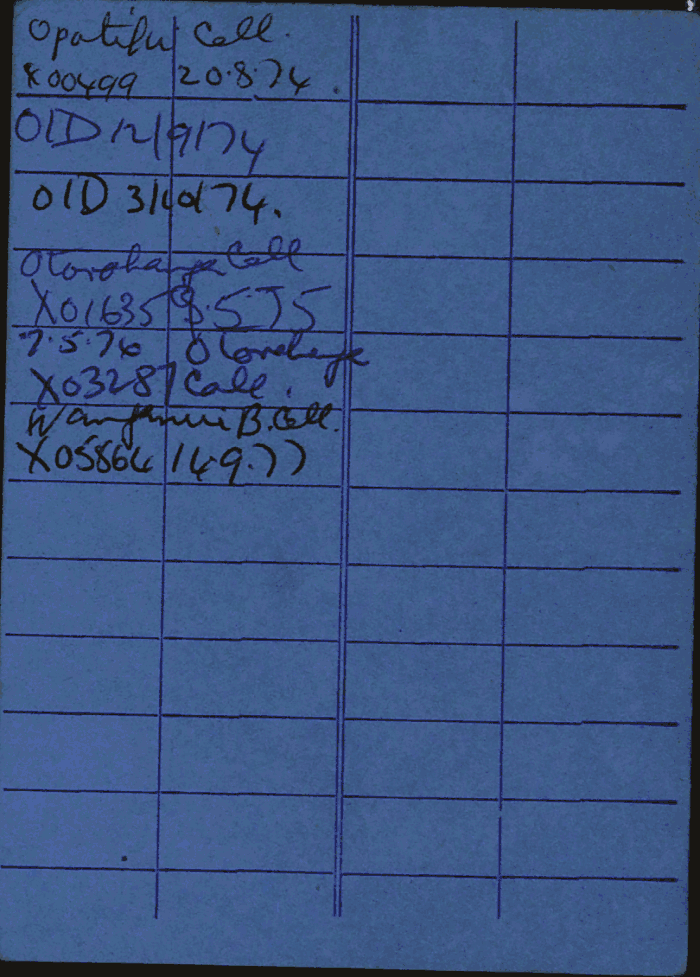 Opatihu Coll.
X00499 20.8.74.
OID 12/9/74
OID 3/10/74.
Otorohanga Coll
X01635 9.5.75
7.5.76 Otorohanga
X03287 Coll.
B. Coll.
X05864 14.9.77